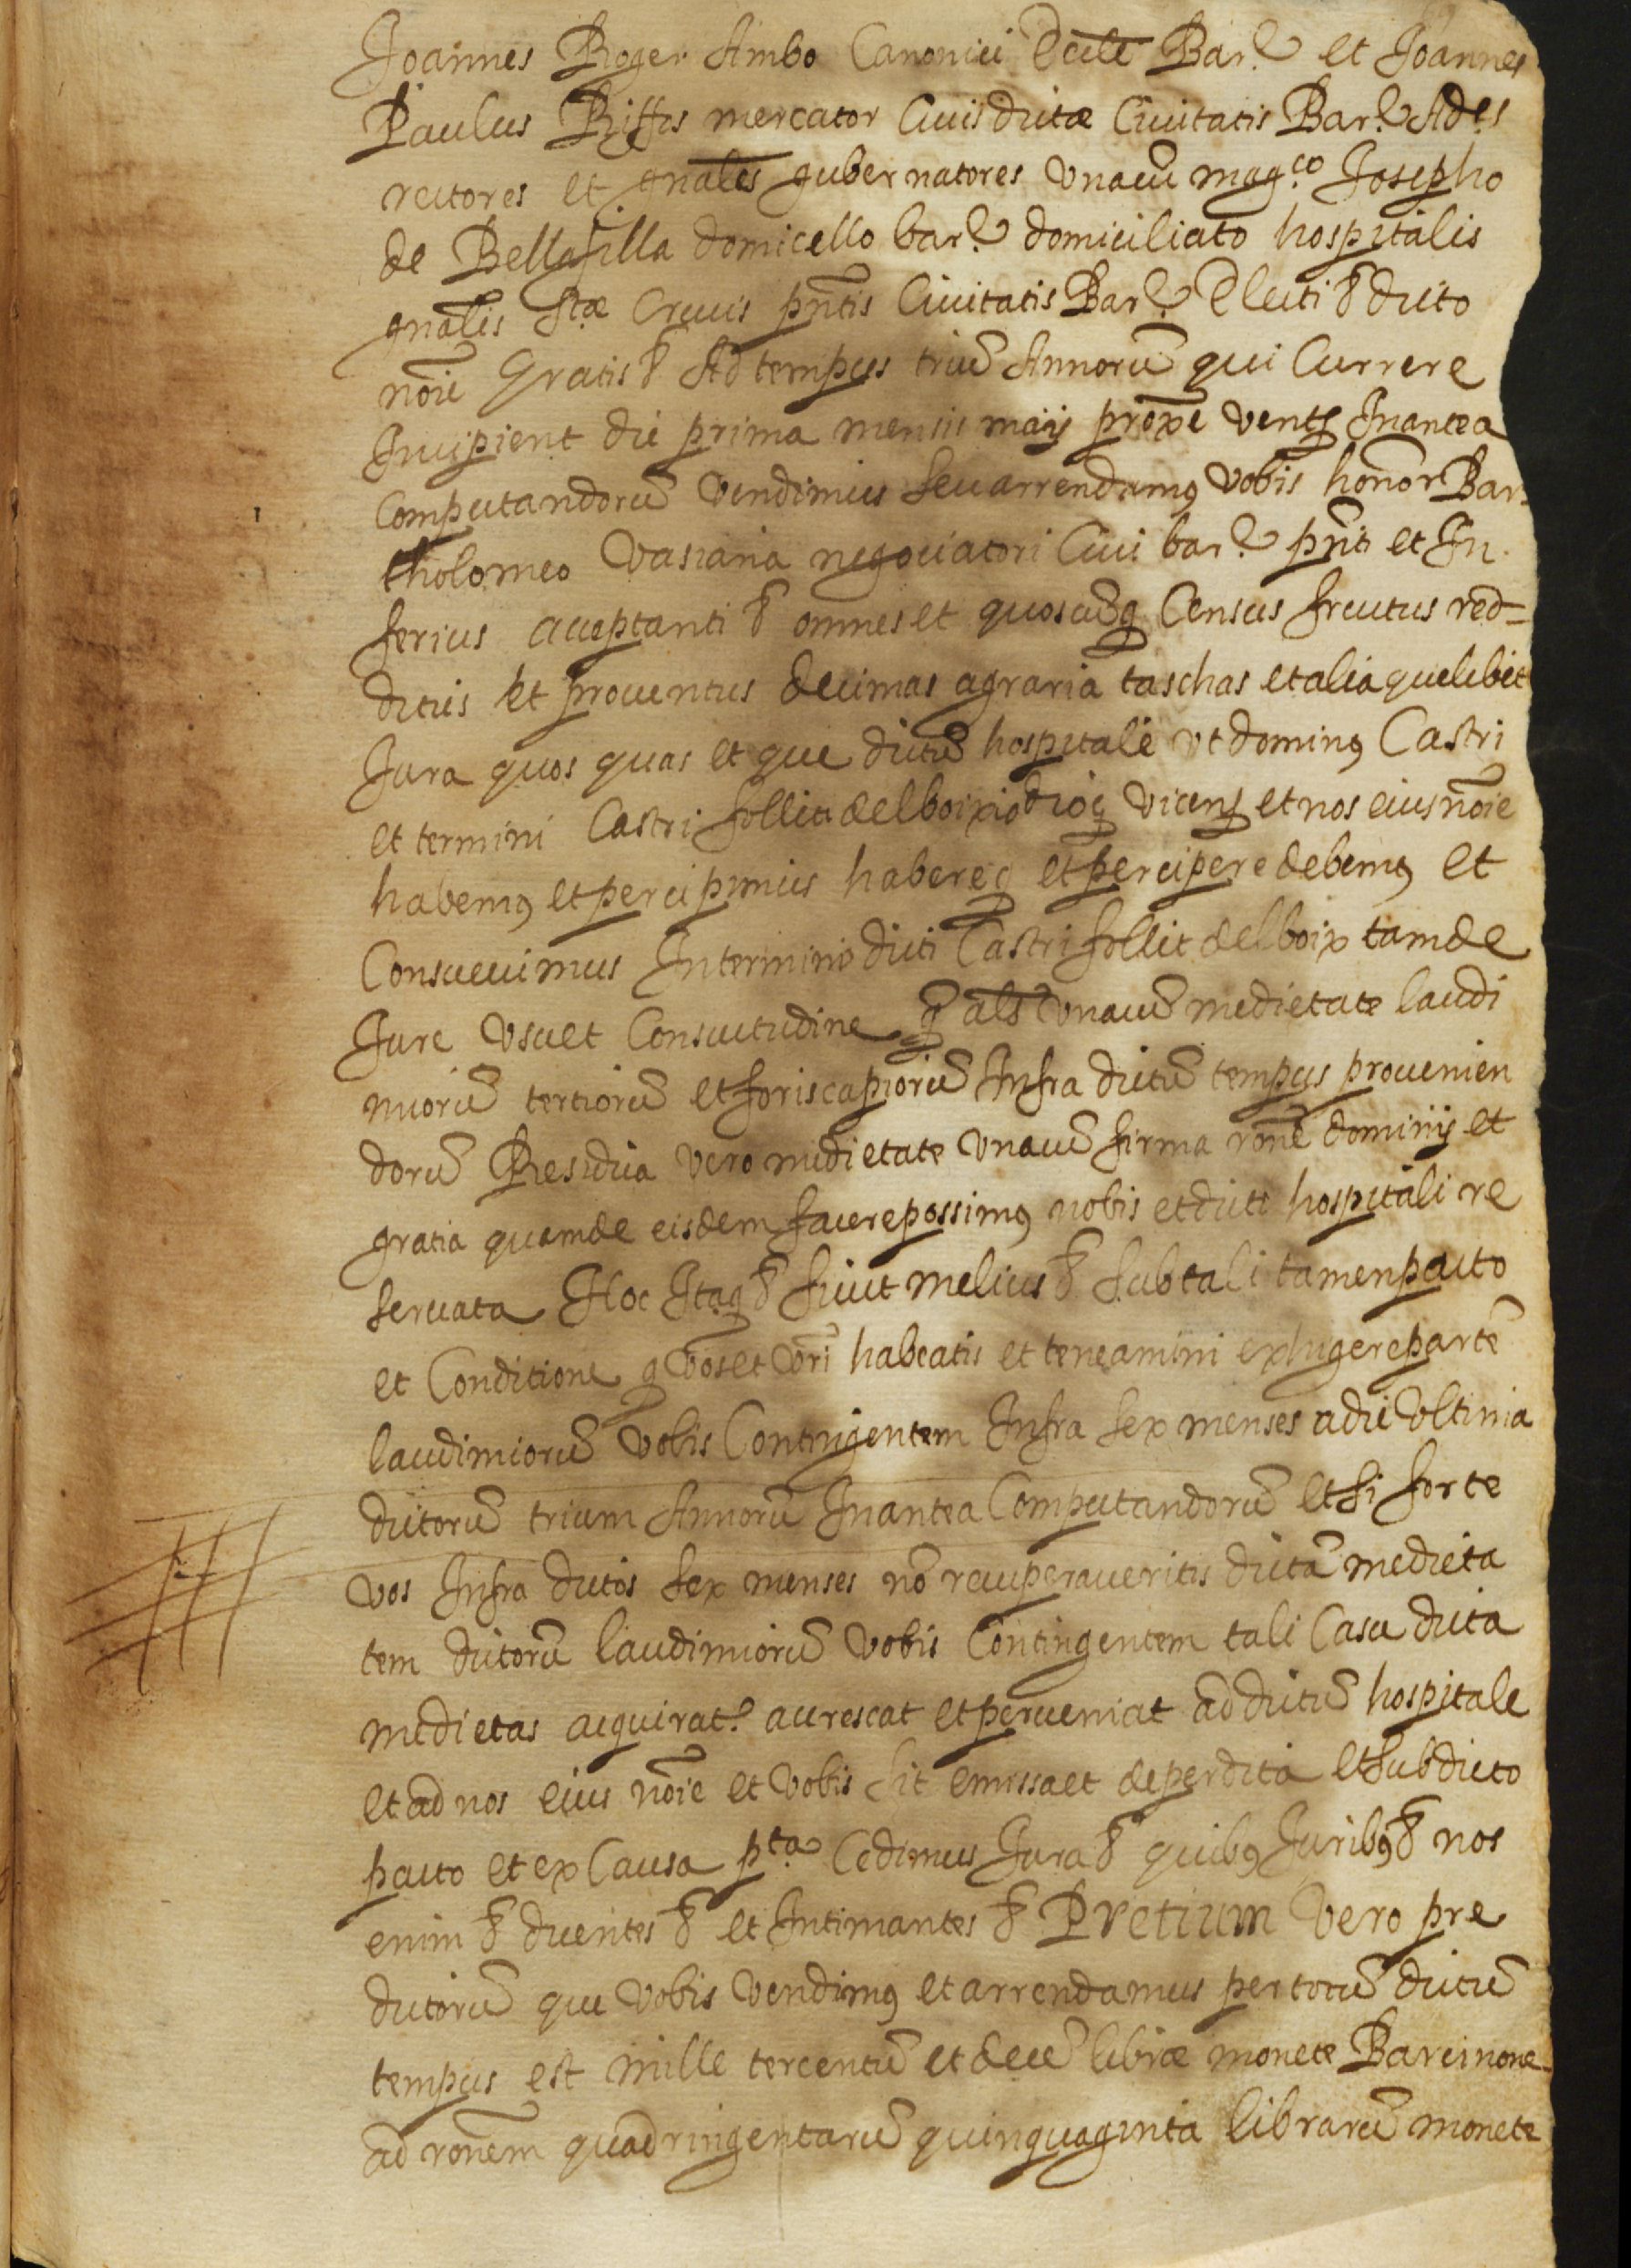 Joannes Roger Ambo Canonici Eccle Bar. et Joannes
Paulus Riffis mercator Civis dictæ Civitatis Bar. Ades
rectores et gnales gubernatores unacũ mag.co Josepho
de Bellafilla domicello bar. domiciliato hospitalis
gnalis Stæ Crucis pñtis Civitatis Bar. Electi & dicto
noie Gratis & Ad tempus triũ Annorũ qui Currere
Incipient die prima mensis maij proxe vents Inantea
Computandorũ Vendimus seu arrendamus vobis honor Bar-
tholomeo negociatori Civi bar. pñti et In
ferius acceptanti & omnes et quoscũq Census fructus red=
ditus et proventus decimas agraria taschas et alia quelibet
Jura quos quas et que dictũ hospitale ut dominus Castri
et termini Castri follit del boix vicens et nos eius noie
habemus et percipimus habereq et percipere debemus et
Consuevimus In termino dicti Castri follit del boix tam de
Jure usu et Consuetudine q als unacũ medietate laudi
miorũ tertiorũ et foriscapiorũ Infra dictũ tempus provenien
dorũ Residua vero medietate unacũ firma rone dominij et
gratia quam de eisdem facere possimus nobis et dicti hospitali re
servata Hoc Itaq & sicut melius & sub tali tamen pacto
et Conditione q vos et vri habeatis et teneamini exhigere partẽ
laudimiorũ vobis Contingentem Infra sex menses a die ultima
dictorũ trium Annorũ Inantea Computandorũ et si forte
vos Infra dictos sex menses nõ recuperaveritis dictã medieta
tem dictorũ laudimiorũ vobis Contingentem tali Casu dicta
medietas acquirat. accrescat et perveniat ad dictũ hospitale
et ad nos eius noie et vobis sit emissa et deperdita et sub dicto
pacto et ex Causa p.ta Cedimus Jura & quibus Juribus & nos
enim & dicentes & et Intimantes & Pretium vero pre
dictorũ que vobis vendimus et arrendamus per totũ dictũ
tempus est mille tercentũ et decẽ libræ monete Barcinone
ad ronem quadringentarũ quinquaginta librarũ monete